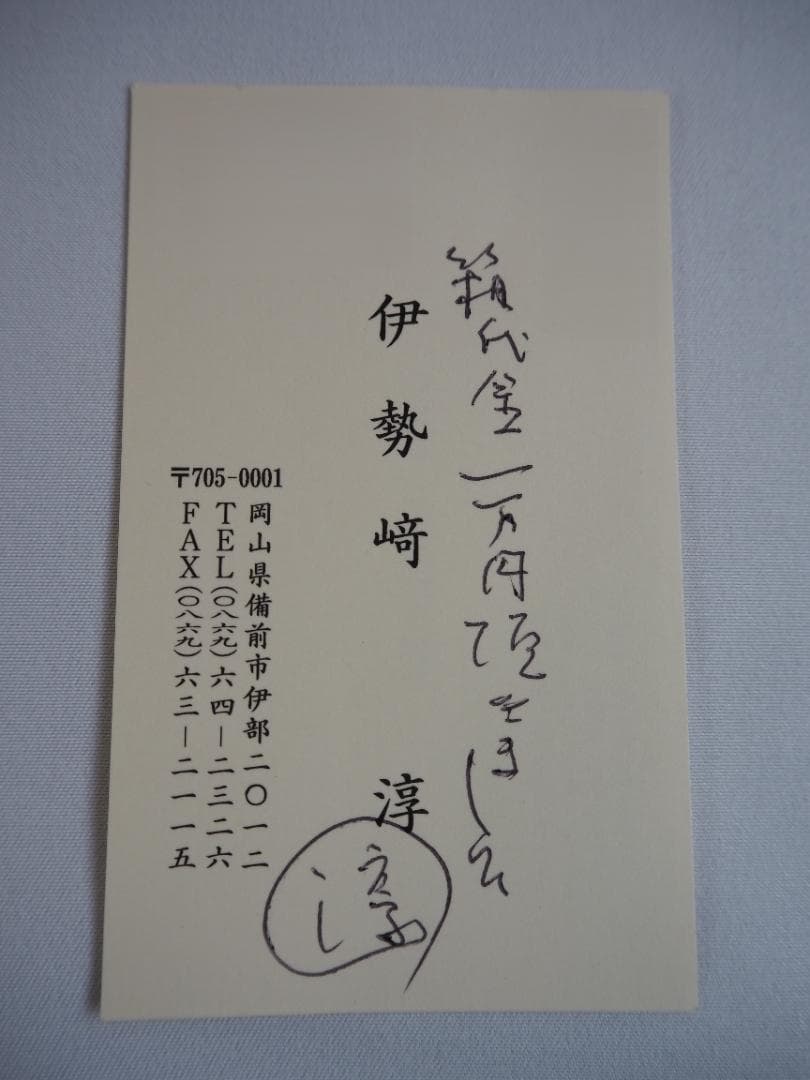 箱代金一万円頂きました
伊勢﨑淳
淳
〒705-0001
岡山県備前市伊部二〇一二
TEL(〇八六九)六四-二三二六
FAX(〇八六九)六三-二一一五